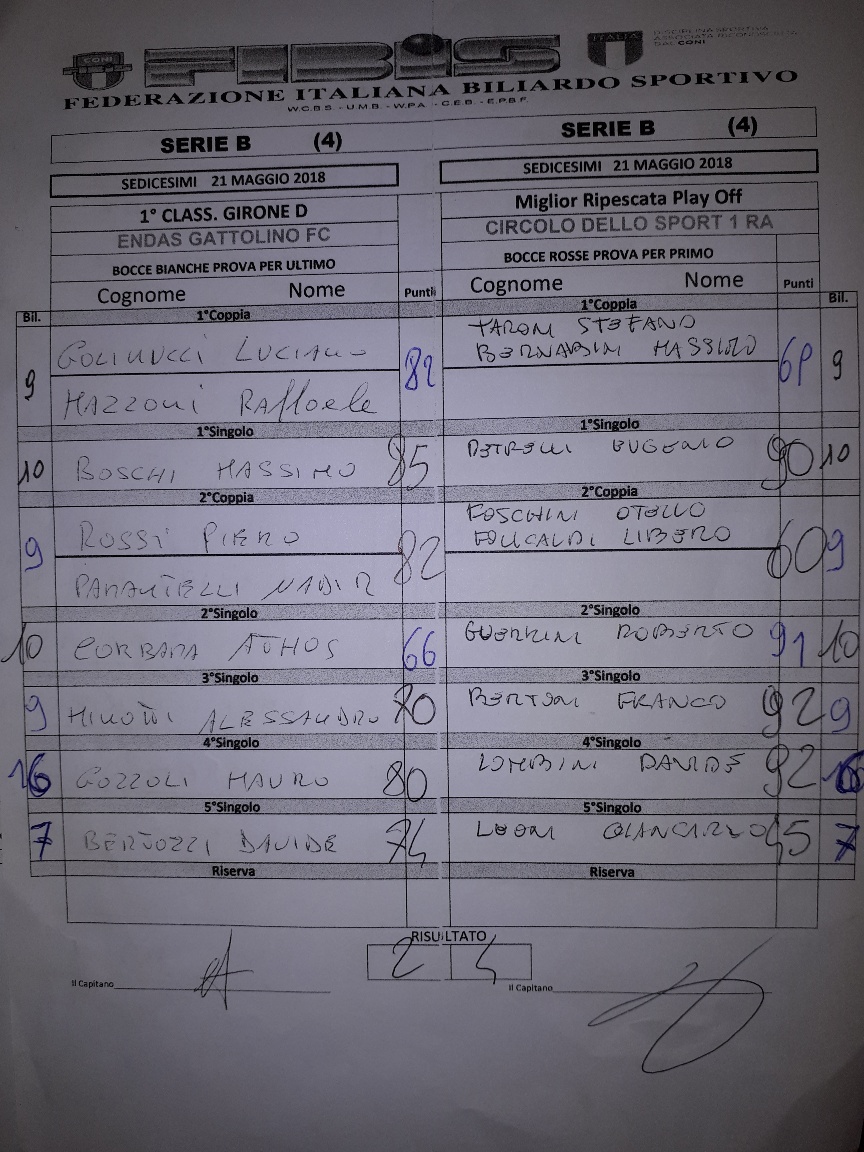 CONI
FIBiS
ITALIA
DISCIPLINA SPORTIVA
ASSOCIATA RICONOSCIUTA
DAL CONI
FEDERAZIONE ITALIANA BILIARDO SPORTIVO
W.C.B.S. - U.M.B. - W.P.A. - C.E.B. - E.P.B.F.
SERIE B (4)
SEDICESIMI 21 MAGGIO 2018
1° CLASS. GIRONE D
ENDAS GATTOLINO FC
BOCCE BIANCHE PROVA PER ULTIMO
Cognome Nome Punti
Bil. 1°Coppia
GOLINUCCI LUCIANO
9 82
MAZZONI RAffaele
1°Singolo
10 BOSCHI MASSIMO 85
2°Coppia
ROSSI PIERO
9 82
NADIR
2°Singolo
10 ATHOS 66
3°Singolo
9 ALESSANDRO 70
4°Singolo
16 GOZZOLI MAURO 80
5°Singolo
7 BERTOZZI DAVIDE 74
Riserva
SERIE B (4)
SEDICESIMI 21 MAGGIO 2018
Miglior Ripescata Play Off
CIRCOLO DELLO SPORT 1 RA
BOCCE ROSSE PROVA PER PRIMO
Cognome Nome Punti
1°Coppia Bil.
TARONI STEFANO
BERNARDINI MASSIMO
9
1°Singolo
PETRELLI EUGENIO 90 10
2°Coppia
FOSCHINI OTELLO
LIBERO
60 9
2°Singolo
GUERRINI ROBERTO 91 10
3°Singolo
BERTONI FRANCO 92 9
4°Singolo
LOMBINI DAVIDE 92 16
5°Singolo
LEONI GIANCARLO 45 7
Riserva
RISULTATO
2
Il Capitano
Il Capitano